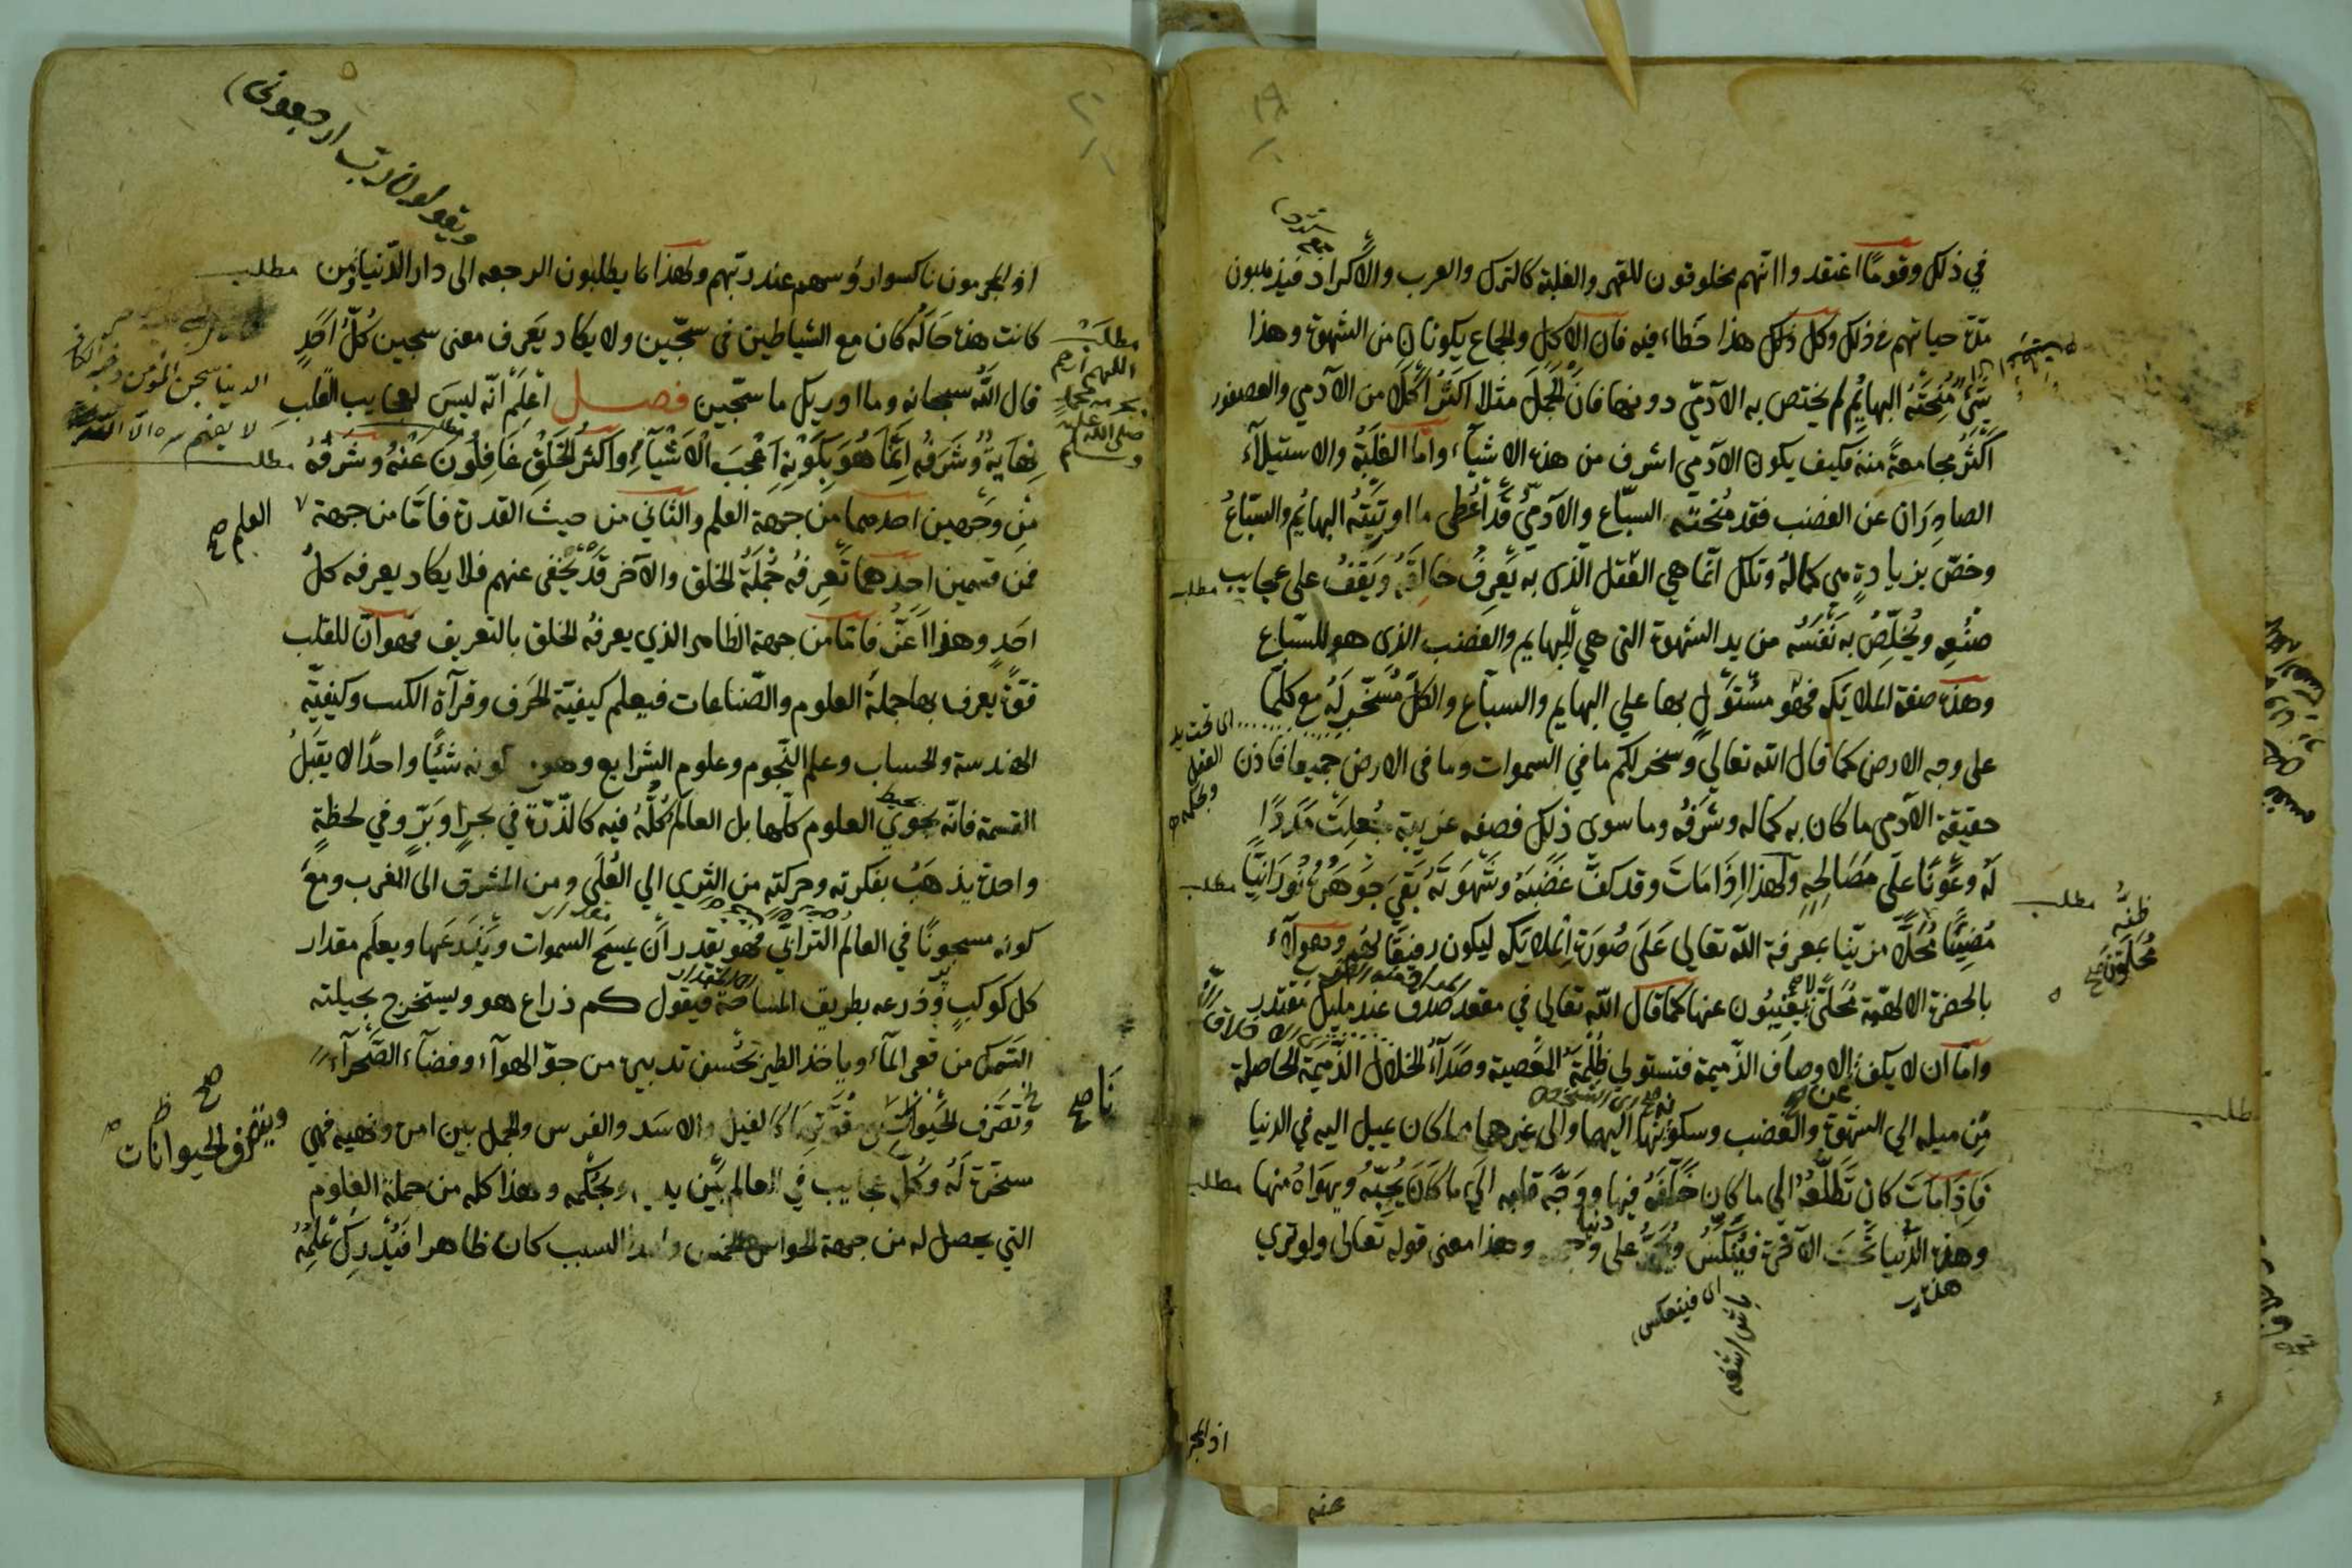 في ذلك وقوما اعتقدوا انهم مخلوقون للقهر والغلبة كالترك والعرب والاكراد فيذهبون
مدة حياتهم في ذلك وكل ذلك هذا خطاء فيه فان الاكل والجماع يكونان من الشهوة وهذا
شئ مُنِحَتْهُ البهائم لم يختص به الآدمي دونها فان الجمل مثلا اكثر اكلا من الآدمي والعصفور
اكثر مجامعة منه فكيف يكون الآدمي اشرف من هذه الاشياء واما الغلبة والاستيلاء
الصادران عن الغضب فقد مُنحته السباع والآدمي قد أُعطى ما اوتيته البهائم والسباع
وخصّ بزيادة هي كماله وتلك انما هي العقل الذى به يعرف خالقه ويقف على عجايب
صنعه ويخلص به نفسه من يد الشهوة التى هي للبهايم والغضب الذى هو للسباع
وهذه صفة الملايكه فهو مستول بها علي البهايم والسباع والكل مسخر له مع كلما
على وجه الارض كما قال الله تعالى وسخر لكم ما في السموات وما فى الارض جميعا فاذن
حقيقة الآدمى ما كان به كماله وشرفه وما سوى ذلك فصفه غريبة جعلت مددًا
له وعونا على مصالحه ولهذا اذا مات وقد كف غضبه وشهوته بقي جوهره نورانيا
مضيئا محلّا مزينا بمعرفة الله تعالى على صورة الملايكه ليكون رفيقا لهم وهولاء
بالحضرة الالهية لا يغيبون عنها كما قال الله تعالي في مقعد صدق عند مليك مقتدر
واما ان لا يكف الاوصاف الذميمة فتستولي ظلمة المعصية وصداء الخلال الذميمة الحاصلة
من ميله الي الشهوة والغضب وسكونها اليهما والى غيرهما مما كان يميل اليه في الدنيا
فاذا مات كان تطلعه الى ما كان خلّفه فيها ووجه قلبه الي ما كان يحبه ويهواه منها
وهذه الدنيا تحت الآخرة فينكس على وجهه وهذا معنى قوله تعالى ولو ترى
مطلب
مطلب
مطلب
مطلب
اى فينعكس
هذه
اذ المجر
اذ المجرمون ناكسوا رؤسهم عند ربهم ولهذا ما يطلبون الرجعه الى دار الدنيا ومن
كانت هذه حاله كان مع الشياطين فى سجّين ولا يكاد يعرف معنى سجين كل احد
قال الله سبحانه وما ادريك ما سجّين فصل اعلم انه ليس لعجايب القلب
نهاية وشرفه انما هو بكونه اعجب الاشياء واكثر الخلق غافلون عنه وشرفه
من وجهين احدهما من جهة العلم والثاني من حيث القدرة فاما من جهة
فمن قسمين احدهما تعرفه جملة الخلق والآخر قد يخفى عنهم فلا يكاد يعرفه كل
احد وهذا اعزّ فاما من جهة الظاهر الذي يعرفه الخلق بالتعريف فهو ان للقلب
قوة يعرف بها جملة العلوم والصناعات فيعلم كيفية الحرف وقرآة الكتب وكيفيّة
الهندسة والحساب وعلم النجوم وعلوم الشرايع وهو كونه شيئا واحدا لا يقبل
القسمة فانه يحوي العلوم كلها بل العالم كله فيه كالذرة في بحر او بر وفي لحظة
واحدة يذهب بفكرته وحركته من الثرى الي العلى ومن المشرق الى المغرب ومع
كونه مسجونا في العالم الترابي فهو يقدر ان يمسح السموات ويعلم مقدار
كل كوكب وذرعه بطريق المساحة فيقول كم ذراع هو ويستخرج بحيلته
السمك من قعر الماء وياخذ الطير بحسن تدبيره من جو الهوآء وفضآء الصحرآء
وتصرف الحيوانات كالفيل والاسد والفرس والجمل بين امره ونهيه فهي
سخرة له وكل عجايب في العالم بين يديه وبحكمه وهذا كله من جملة العلوم
التي يحصل له من جهة الحواس الخمس السبب كان ظاهرا فيدرك علمه
ويقولون رب ارجعون
مطلب
مطلب
اللهم ارحم
صلى الله عليه
وسلم
الدنيا سجن المؤمن
مطلب
العلم صح
صح